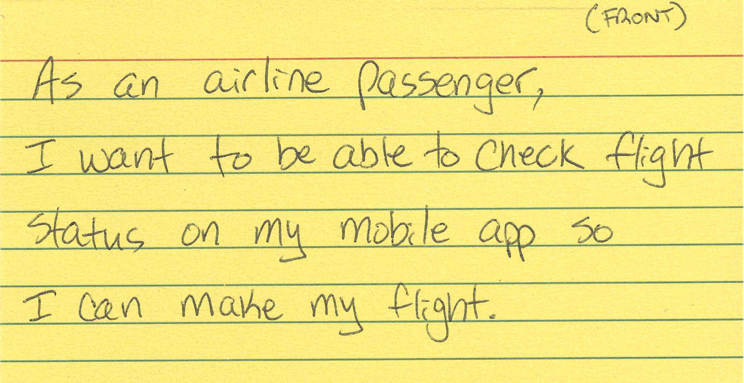 (FRONT)
As an airline passenger,
I want to be able to check flight
status on my mobile app so
I can make my flight.